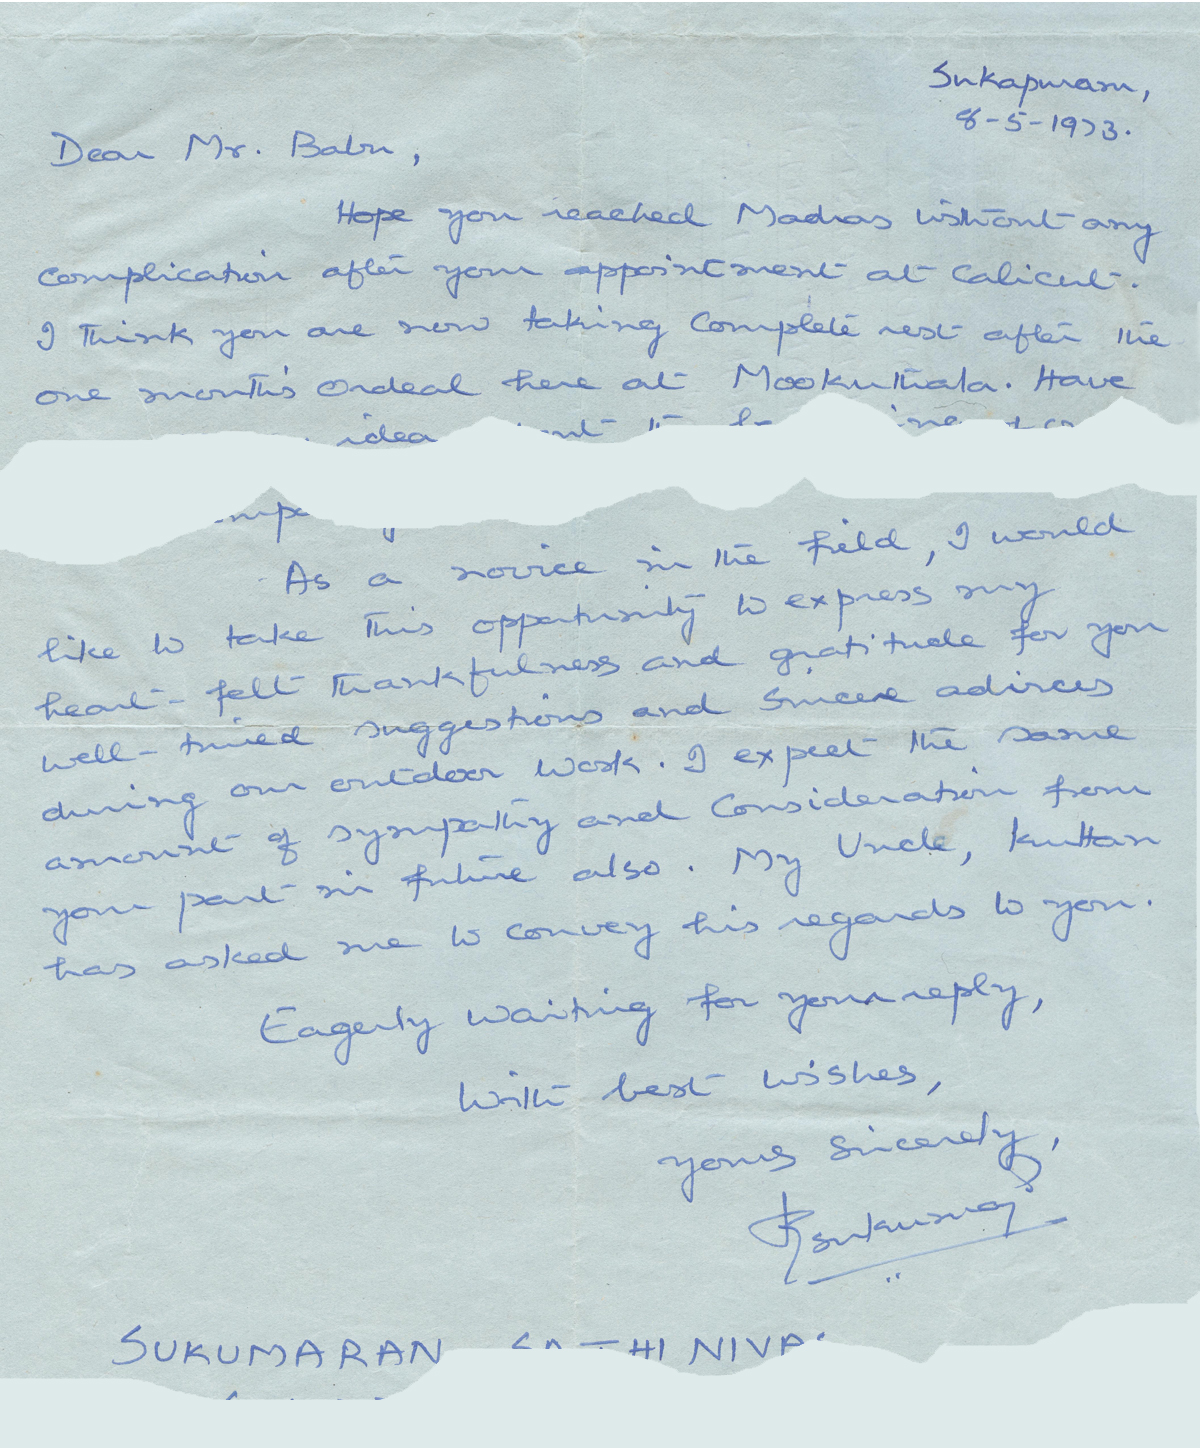 Sukapuram,
8-5-1973.
Dear Mr. Babu,
Hope you reached Madras without any
complication after your appointment at Calicut.
I think you are now taking complete rest after the
one month's ordeal here at Mookuthala. Have
idea
As a novice in the field, I would
like to take this opportunity to express my
heart-felt thankfulness and gratitude for you
well-timed suggestions and sincere advices
during our outdoor work. I expect the same
amount of sympathy and consideration from
your part in future also. My Uncle, Kuttan
has asked me to convey his regards to you.
Eagerly waiting for your reply,
With best wishes,
yours sincerely,
SUKUMARAN